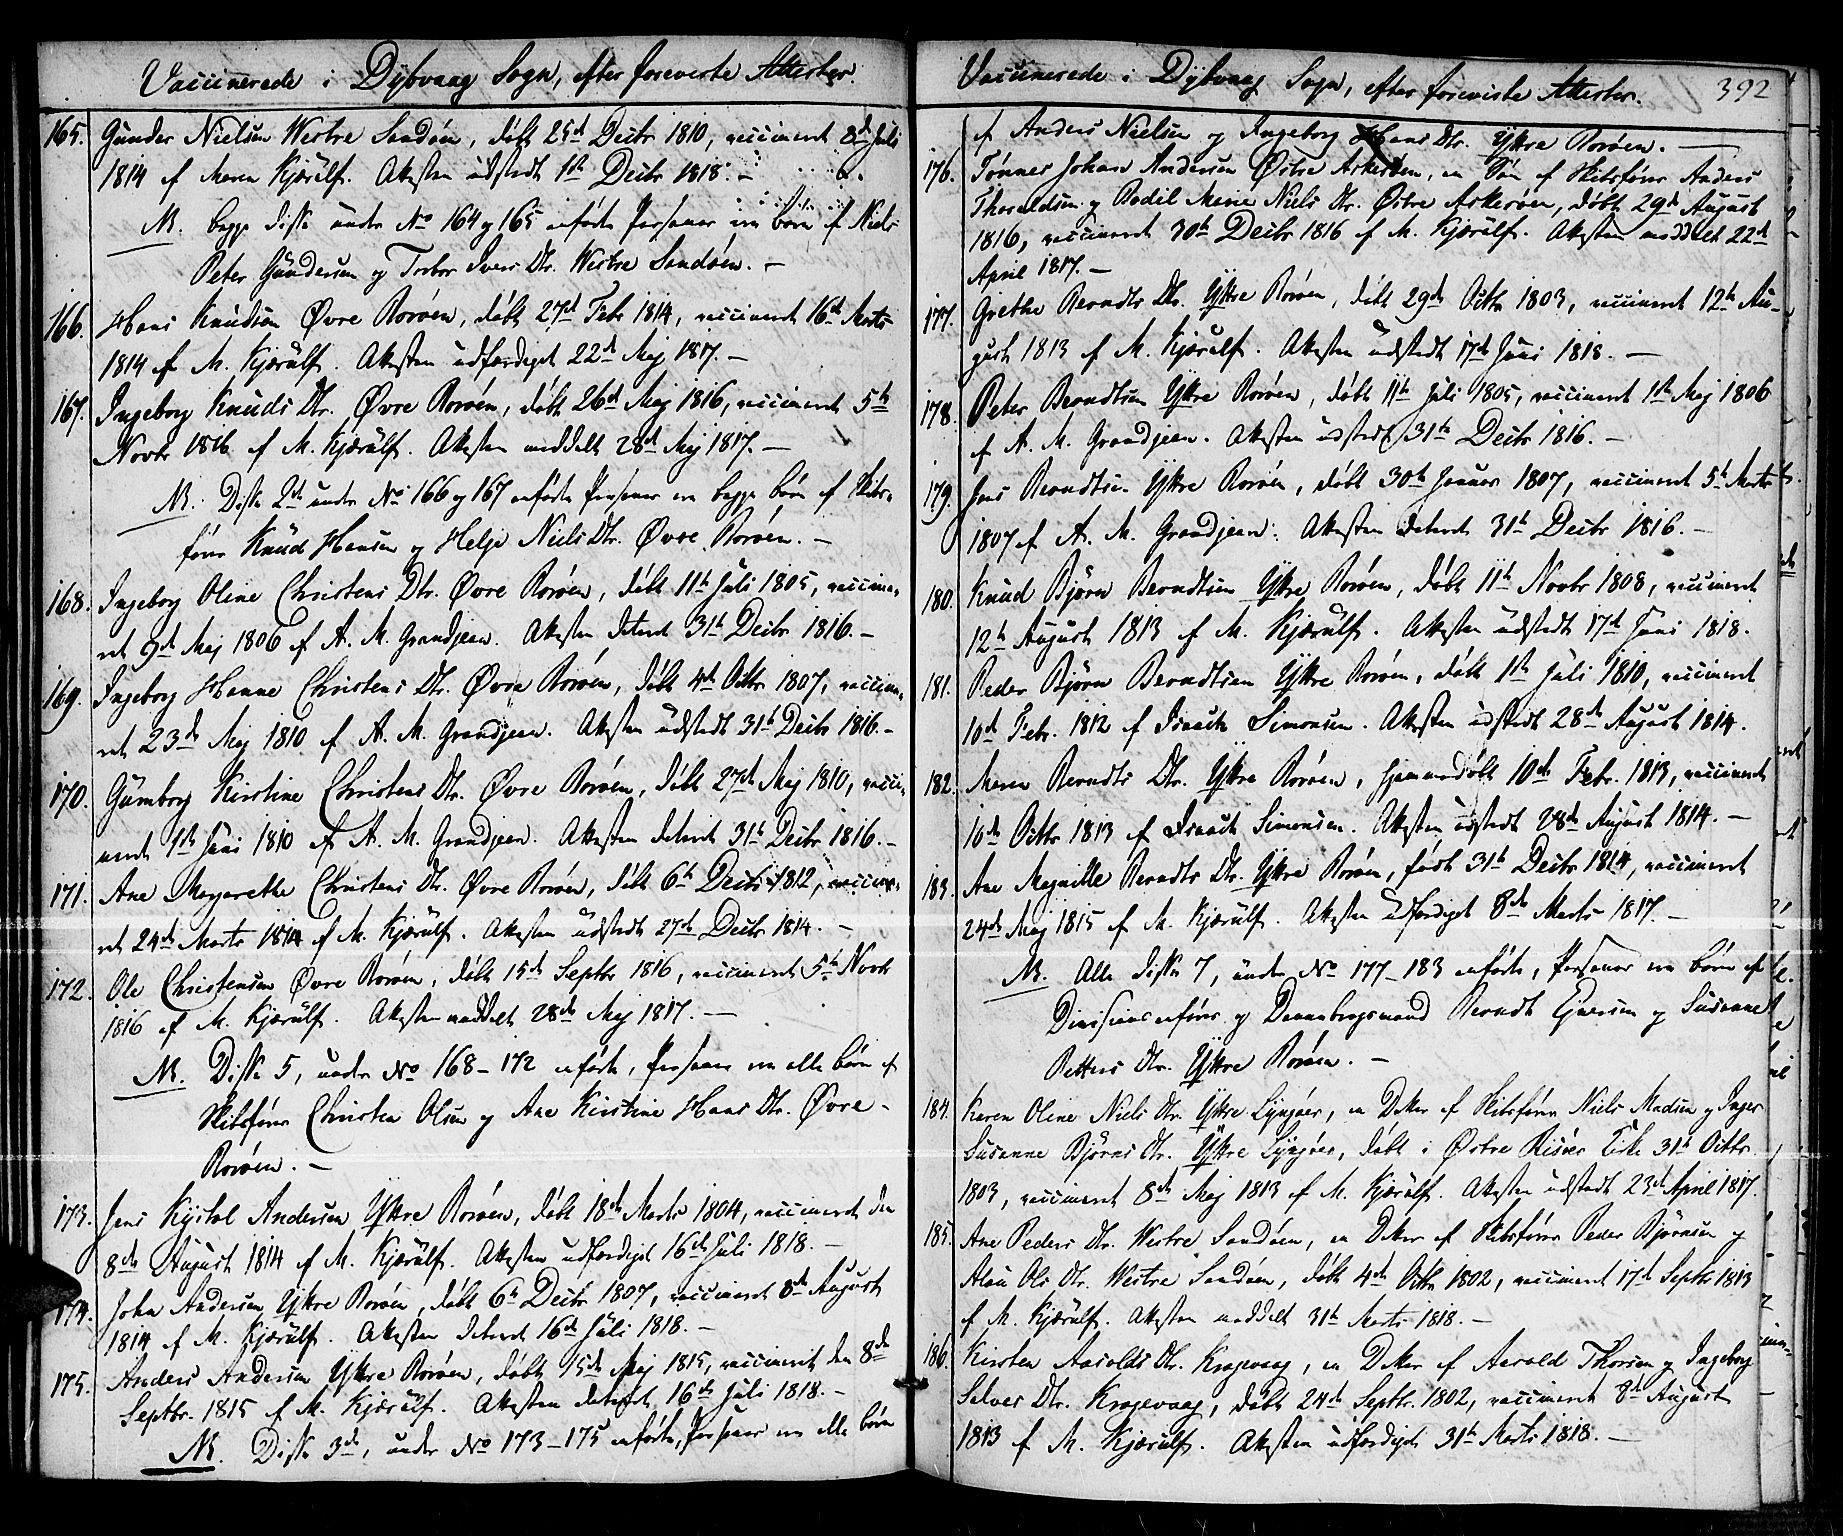 Vaccinerede i Dÿbvaag Sogn, efter foreviste Attester.
165. Gunder Nielsen Westre Sandøen, døbt 25de Decbr 1810, vaccineret 8de Juli
1814 af Maren Kjærülf. Attesten udstedt 1ste Decbr 1818. –
NB. begge disse under No 164 og 165 anførte Personer ere børn af Niels
Peter Gündersen og Torbor Ivers Dtr. Westre Sandøen. –
166. Hans Knudsen Øvre Rorøen, døbt 27de Febr 1814, vaccineret 16de Marts
1814 af M. Kjærülf. Attesten udfærdiget 22de Maj 1817. –
167. Ingeborg Knuds Dtr. Øvre Rorøen, døbt 26de Maj 1816, vaccineret 5te
Novbr 1816 af M. Kjærülf. Attesten meddelt 28de Maj 1817. –
NB. Disse 2de under No 166 og 167 anførte Personer ere begge børn af Skibs-
fører Knud Hansen og Helje Niels Dtr. Øvre Rorøen. –
168. Ingeborg Oline Christens Dtr. Øvre Rorøen, døbt 11te Juli 1805, vaccine-
ret 9de Maj 1806 af A. M. Grandjean. Attesten dateret 31te Decbr 1816. –
169. Ingeborg Hanne Christens Dtr. Øvre Rorøen, døbt 4de Octbr 1807, vaccine-
ret 23de Maj 1810 af A. M. Grandjean. Attesten udstedt 31te Decbr 1816. –
170. Gumborg Kirstine Christens Dtr. Øvre Rorøen, døbt 27de Maj 1810, vacci-
neret 1ste Juni 1810 af A. M. Grandjean. Attesten dateret 31te Decbr 1816. –
171. Ane Margarethe Christens Dtr. Øvre Rorøen, døbt 6te Decbr 1812, vaccine-
ret 24de Marts 1814 af M. Kjærülf. Attesten udstedt 27de Decbr 1814. –
172. Ole Christensen Øvre Rorøen, døbt 15de Septbr 1816, vaccineret 5te Novbr
1816 af M. Kjærülf. Attesten meddelt 28de Maj 1817. –
NB. Disse 5, under No 168–172 anførte, Personer ere alle børn af
Skibsfører Christen Olsen og Ane Kirstine Hans Dtr. Øvre
Rorøen. –
173. Jens Kÿstol Andersen Ÿttre Rorøen, døbt 18de Marts 1804, vaccineret den
8de August 1814 af M. Kjærülf. Attesten udfærdiget 16de Juli 1818. –
174. John Andersen Ÿttre Rorøen, døbt 6te Decbr 1807, vaccineret 8de August
1814 af M. Kjærülf. Attesten dateret 16de Juli 1818. –
175. Anders Andersen Ÿttre Rorøen, døbt 15de Maj 1815, vaccineret den 8de
Septbr. 1815 af M. Kjærülf. Attesten dateret 16de Juli 1818. –
NB. Disse 3de, under No 173–175 anførte, Personer ere alle børn
Vaccinerede i Dÿbvaag Sogn, efter foreviste Attester. 392
af Anders Nielsen og Ingeborg Hans Dtr. Ÿttre Rorøen. –
176. Tønnes Johan Andersen Østre Askerøen, en Søn af Skibsfører Anders
Thoraldsen og Bodil Marie Niels Dtr. Østre Askerøen, døbt 29de August
1816, vaccineret 30te Decbr 1816 af M. Kjærülf. Attesten meddelt 22de
April 1817. –
177. Grethe Berndts Dtr. Ÿttre Rorøen, døbt 29de Octbr 1803, vaccineret 12te Au-
gust 1813 af M. Kjærülf. Attesten udstedt 17de Juni 1818. –
178. Peter Berndtsen Ÿttre Rorøen, døbt 11te Juli 1805, vaccineret 1ste Maj 1806
af A. M. Grandjean. Attesten udstedt 31te Decbr 1816. –
179. Jens Berndtsen Ÿttre Rorøen, døbt 30te Januar 1807, vaccineret 5te Marts
1807 af A. M. Grandjean. Attesten dateret 31te Decbr 1816. –
180. Knud Bjørn Berndtsen Ÿttre Rorøen, døbt 11te Novbr 1808, vaccineret
12te August 1813 af M. Kjærülf. Attesten udstedt 17de Juni 1818.
181. Peder Bjørn Berndtsen Ÿttre Rorøen, døbt 1ste Juli 1810, vaccineret
10de Febr. 1812 af Isaach Simonsen. Attesten udstedt 28de August 1814.
182. Maren Berndts Dtr. Ÿttre Rorøen, hjemmedøbt 10de Febr. 1813, vaccineret
10de Octbr 1813 af Isaach Simonsen. Attesten udstedt 28de August 1814. –
183. Ane Magnille Berndts Dtr. Ÿttre Rorøen, født 31te Decbr 1814, vaccineret
24de Maj 1815 af M. Kjærülf. Attesten udfærdiget 8de Marts 1817. –
NB. Alle disse 7, under No 177–183 anførte, Personer ere børn af
Divisionsanfører og Dannebrogsmand Berndt Gjersen og Susanne
Petters Dtr. Ÿttre Rorøen. –
184. Karen Oline Niels Dtr. Ÿttre Lÿngøer, en Datter af Skibsfører Niels Madsen og Inger
Susanne Bjørns Dtr. Ÿttre Lÿngøer, døbt i Østre Risøer Kirke 31te Octbr
1803, vaccineret 8de Maj 1813 af M. Kjærülf. Attesten udstedt 23de April 1817.
185. Ane Peders Dtr. Westre Sandøen, en Datter af Skibsfører Peder Bjørnsen og
Alou Ols Dtr. Westre Sandøen, døbt 4de Octbr 1802, vaccineret 17de Septbr 1813
af M. Kjærülf. Attesten meddelt 31te Marts 1818. –
186. Kirsten Aasolds Dtr. Kragevaag, en Datter af Aasold Thorsen og Ingeborg
Salves Dtr. Kragevaag, døbt 24de Septbr. 1802, vaccineret 8de August
1813 af M. Kjærülf. Attesten udfærdiget 31te Marts 1818. –